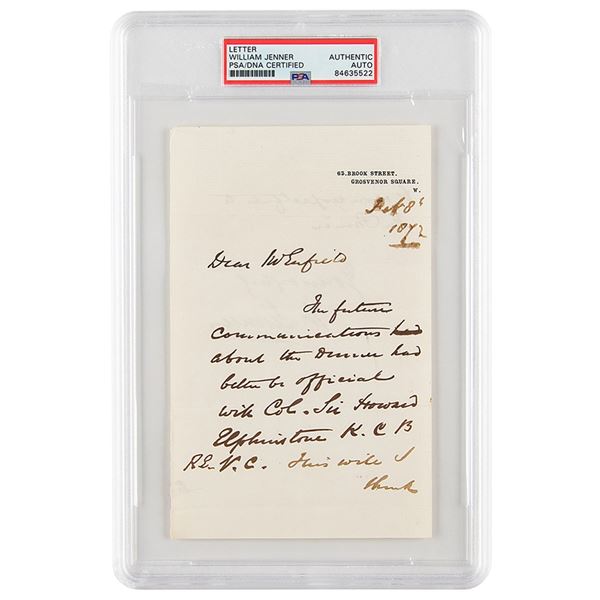 LETTER
WILLIAM JENNER
PSA/DNA CERTIFIED
PSA
AUTHENTIC
AUTO
84635522
63. BROOK STREET,
GROSVENOR SQUARE,
W.
8th
1872
Dear Mr Enfield
The future
communications had
about the Dinner had
better be official
with Col. Sir Howard
Elphinstone K. C B
R.E. V. C. This will I
think